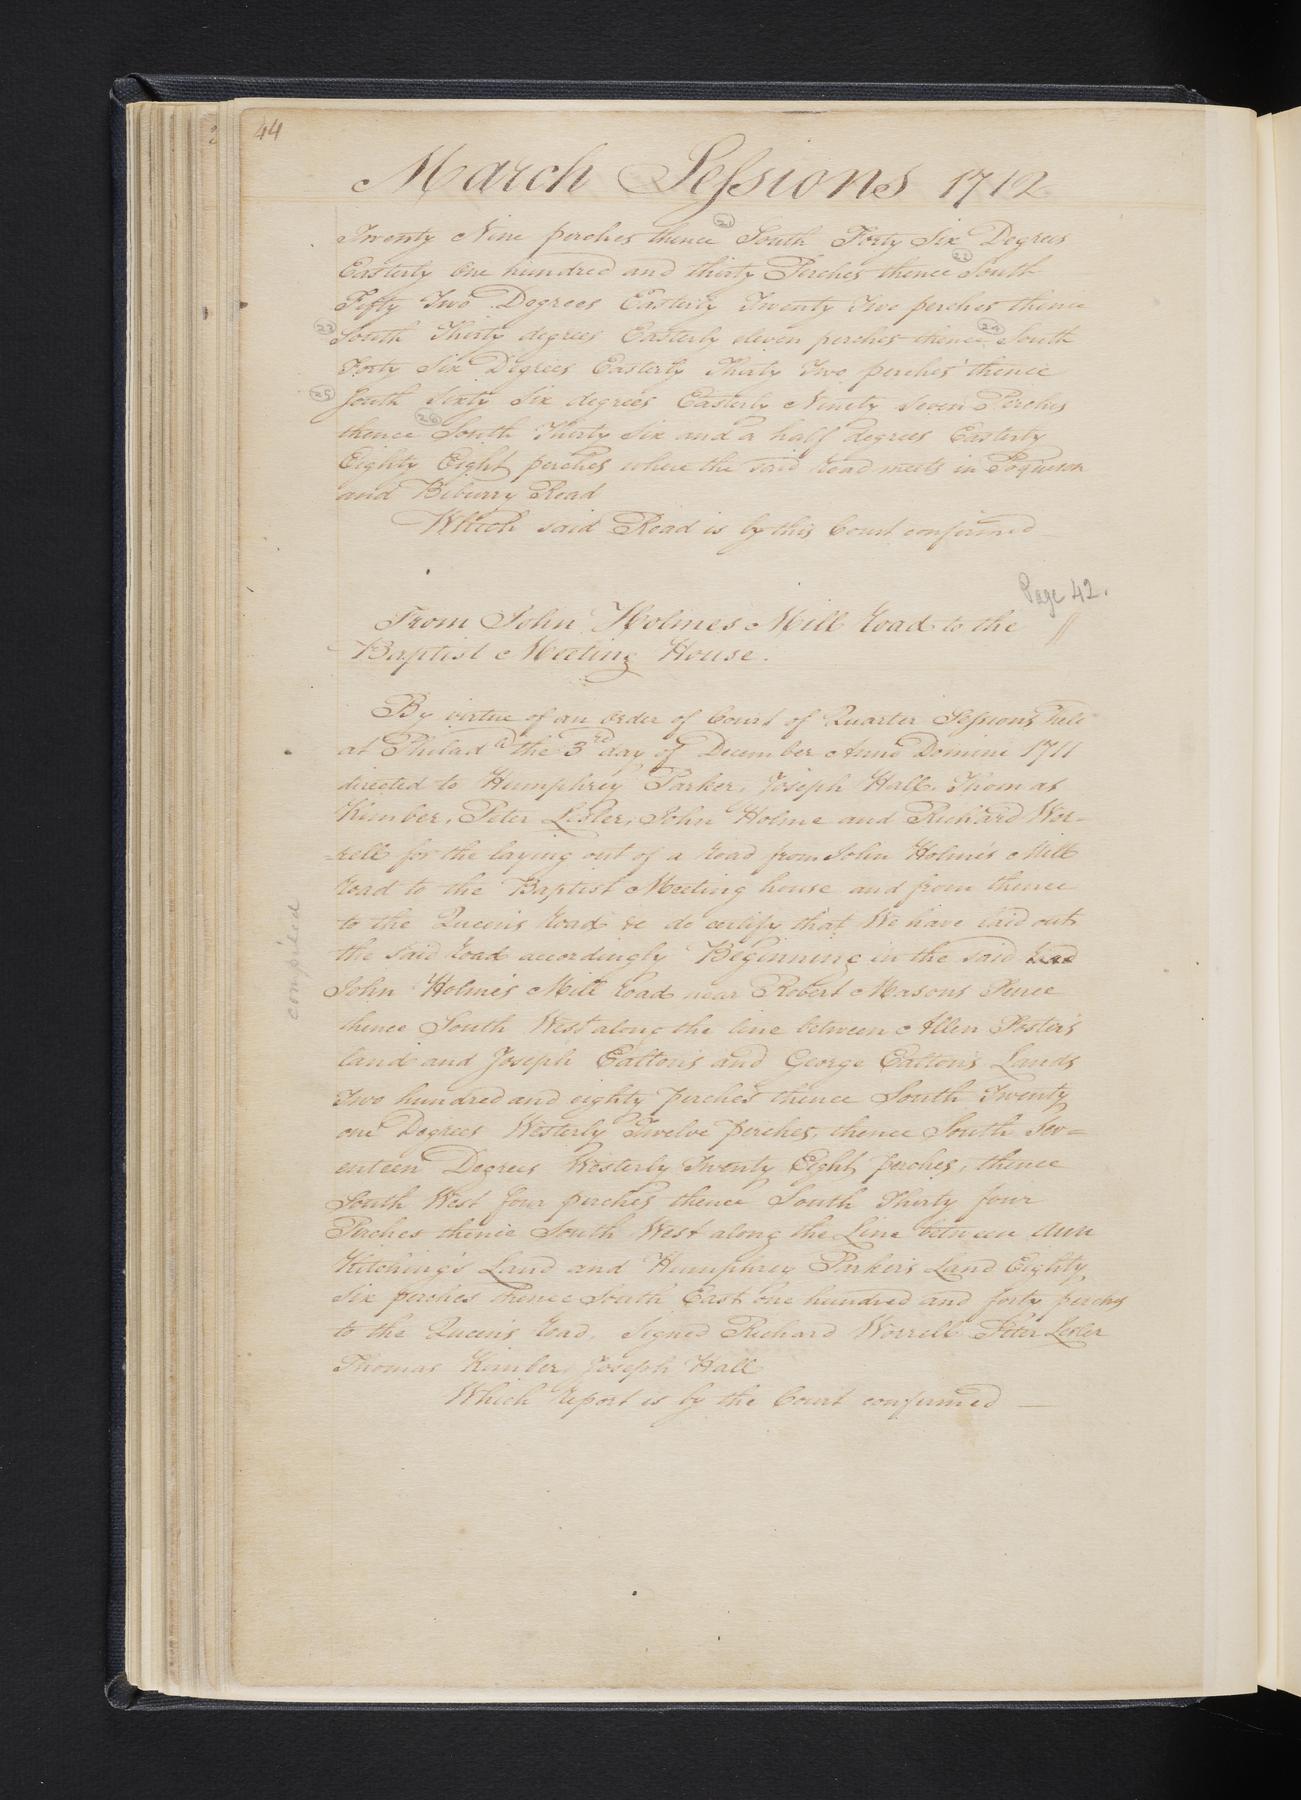 44
March Sessions 1712
Twenty Nine perches thence (21) South Forty Six Degrees
Easterly One hundred and thirty Perches thence (22) South
Fifty Two Degrees Easterly Twenty Two perches thence
(23) South Thirty degrees Easterly eleven perches thence (24) South
Forty Six Degrees Easterly Thirty Two perches thence
(25) South Sixty Six degrees Easterly Ninety Seven Perches
thence (26) South Thirty Six and a half degrees Easterly
Eighty Eight perches where the said Road meets in
and Biberry Road
Which said Road is by this Court confirmed
Page 42.
From John Holmes Mill Road to the //
Baptist Meeting House.
By virtue of an order of Court of Quarter Sessions held
at Philada the 3rd day of December Anno Domini 1711
directed to Humphrey Parker, Joseph Hall, Thomas
Kimber, Peter Lesler, John Holme and Richard Wor-
-rell for the laying out of a Road from John Holme's Mill
Road to the Baptist Meeting house and from thence
to the Queen's Road &c do certify that We have laid out
the said Road accordingly Beginning in the said
John Holme's Mill Road near Robert Masons Fence
thence South West along the line between Allen Foster's
land and Joseph Eatton's and George Eatton's Lands
Two hundred and eighty perches thence South Twenty
one Degrees Westerly Twelve perches, thence South Sev=
enteen Degrees Westerly Twenty Eight perches, thence
South West four perches thence South Thirty four
Perches thence South West along the Line between Ann
Kitching's Land and Humphrey Parker's Land Eighty
Six perches thence South East one hundred and forty perches
to the Queen's Road. Signed Richard Worrell Peter Lesler
Thomas Kimber, Joseph Hall
Which Report is by the Court confirmed —
compared